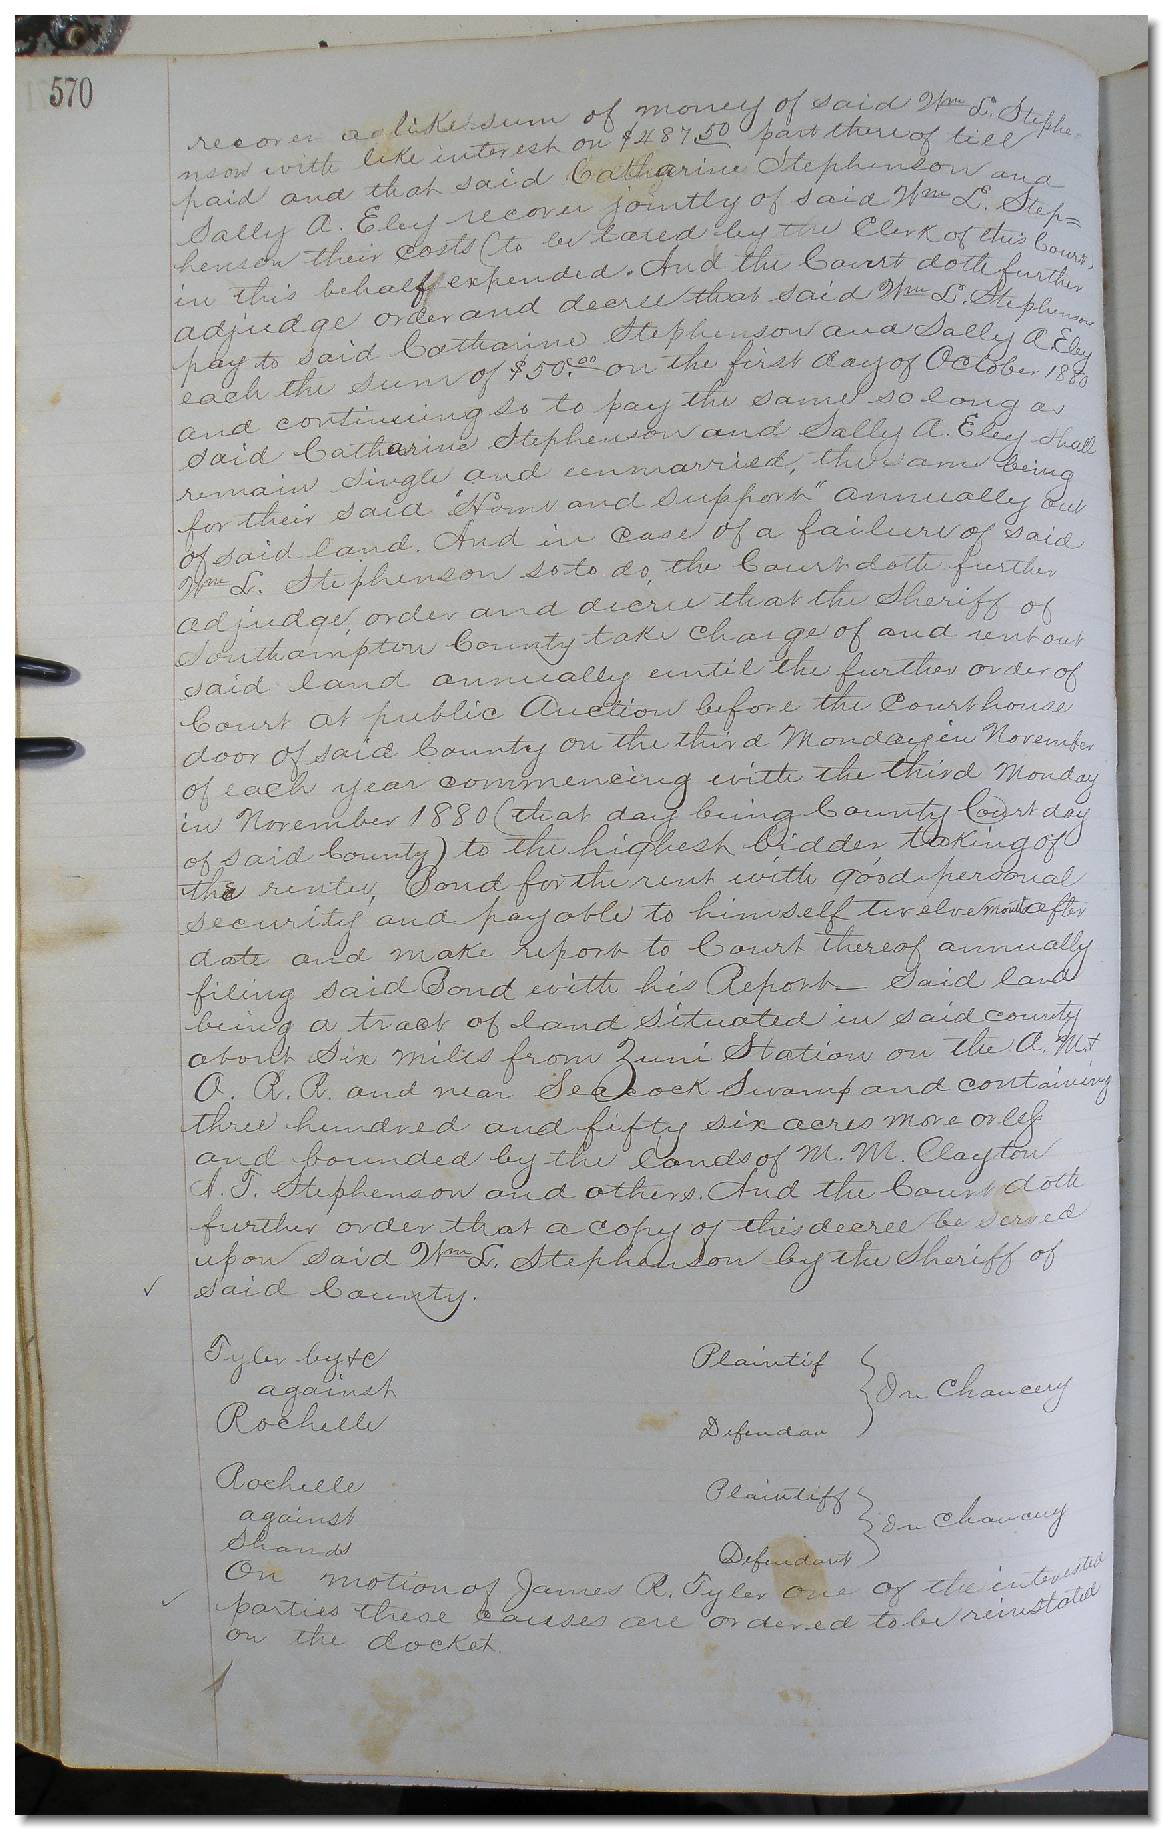 570
recover a like sum of money of said Wm L. Stephe-
nson with like interest on $487.50 part there of till
paid and that said Catharine Stephenson and
Sally A. Eley recover jointly of said Wm L. Step=
henson their costs (to be taxed by the Clerk of this Court)
in this behalf expended. And the Court doth further
adjudge order and decree that said Wm L. Stephenson
pay to said Catharine Stephenson and Sally A Eley
each the sum of $50.00 on the first day of October 1880
and continuing so to pay the same so long as
said Catharine Stephenson and Sally A. Eley shall
remain single and unmarried, the same being
for their said "Home and support" annually out
of said land. And in case of a failure of said
Wm L. Stephenson so to do, the Court doth further
adjudge, order and decree that the Sheriff of
Southampton County take charge of and rent out
said land annually until the further order of
Court at public Auction before the Courthouse
door of said County on the third Monday in November
of each year commencing with the third Monday
in November 1880 (that day being County Court day
of said County) to the highest bidder taking of
the renter, Bond for the rent with good personal
security and payable to himself twelve months after
date and make report to Court thereof annually
filing said Bond with his Report — Said land
being a tract of land situated in said county
about six miles from Zuni Station on the A. M. &
O. R. R. and near Seacock Swamp and containing
three hundred and fifty six acres more or less
and bounded by the lands of M. M. Clayton
A. T. Stephenson and others. And the Court doth
further order that a copy of this decree be served
upon said Wm L. Stephenson by the Sheriff of
said County.
Tyler by &c Plaintif
against } In Chancery
Rochelle Defendan
Rochelle Plaintiff
against } In Chancery
Shands Defendant
On motion of James R. Tyler one of the interested
parties these causes are ordered to be reinstated
on the docket.